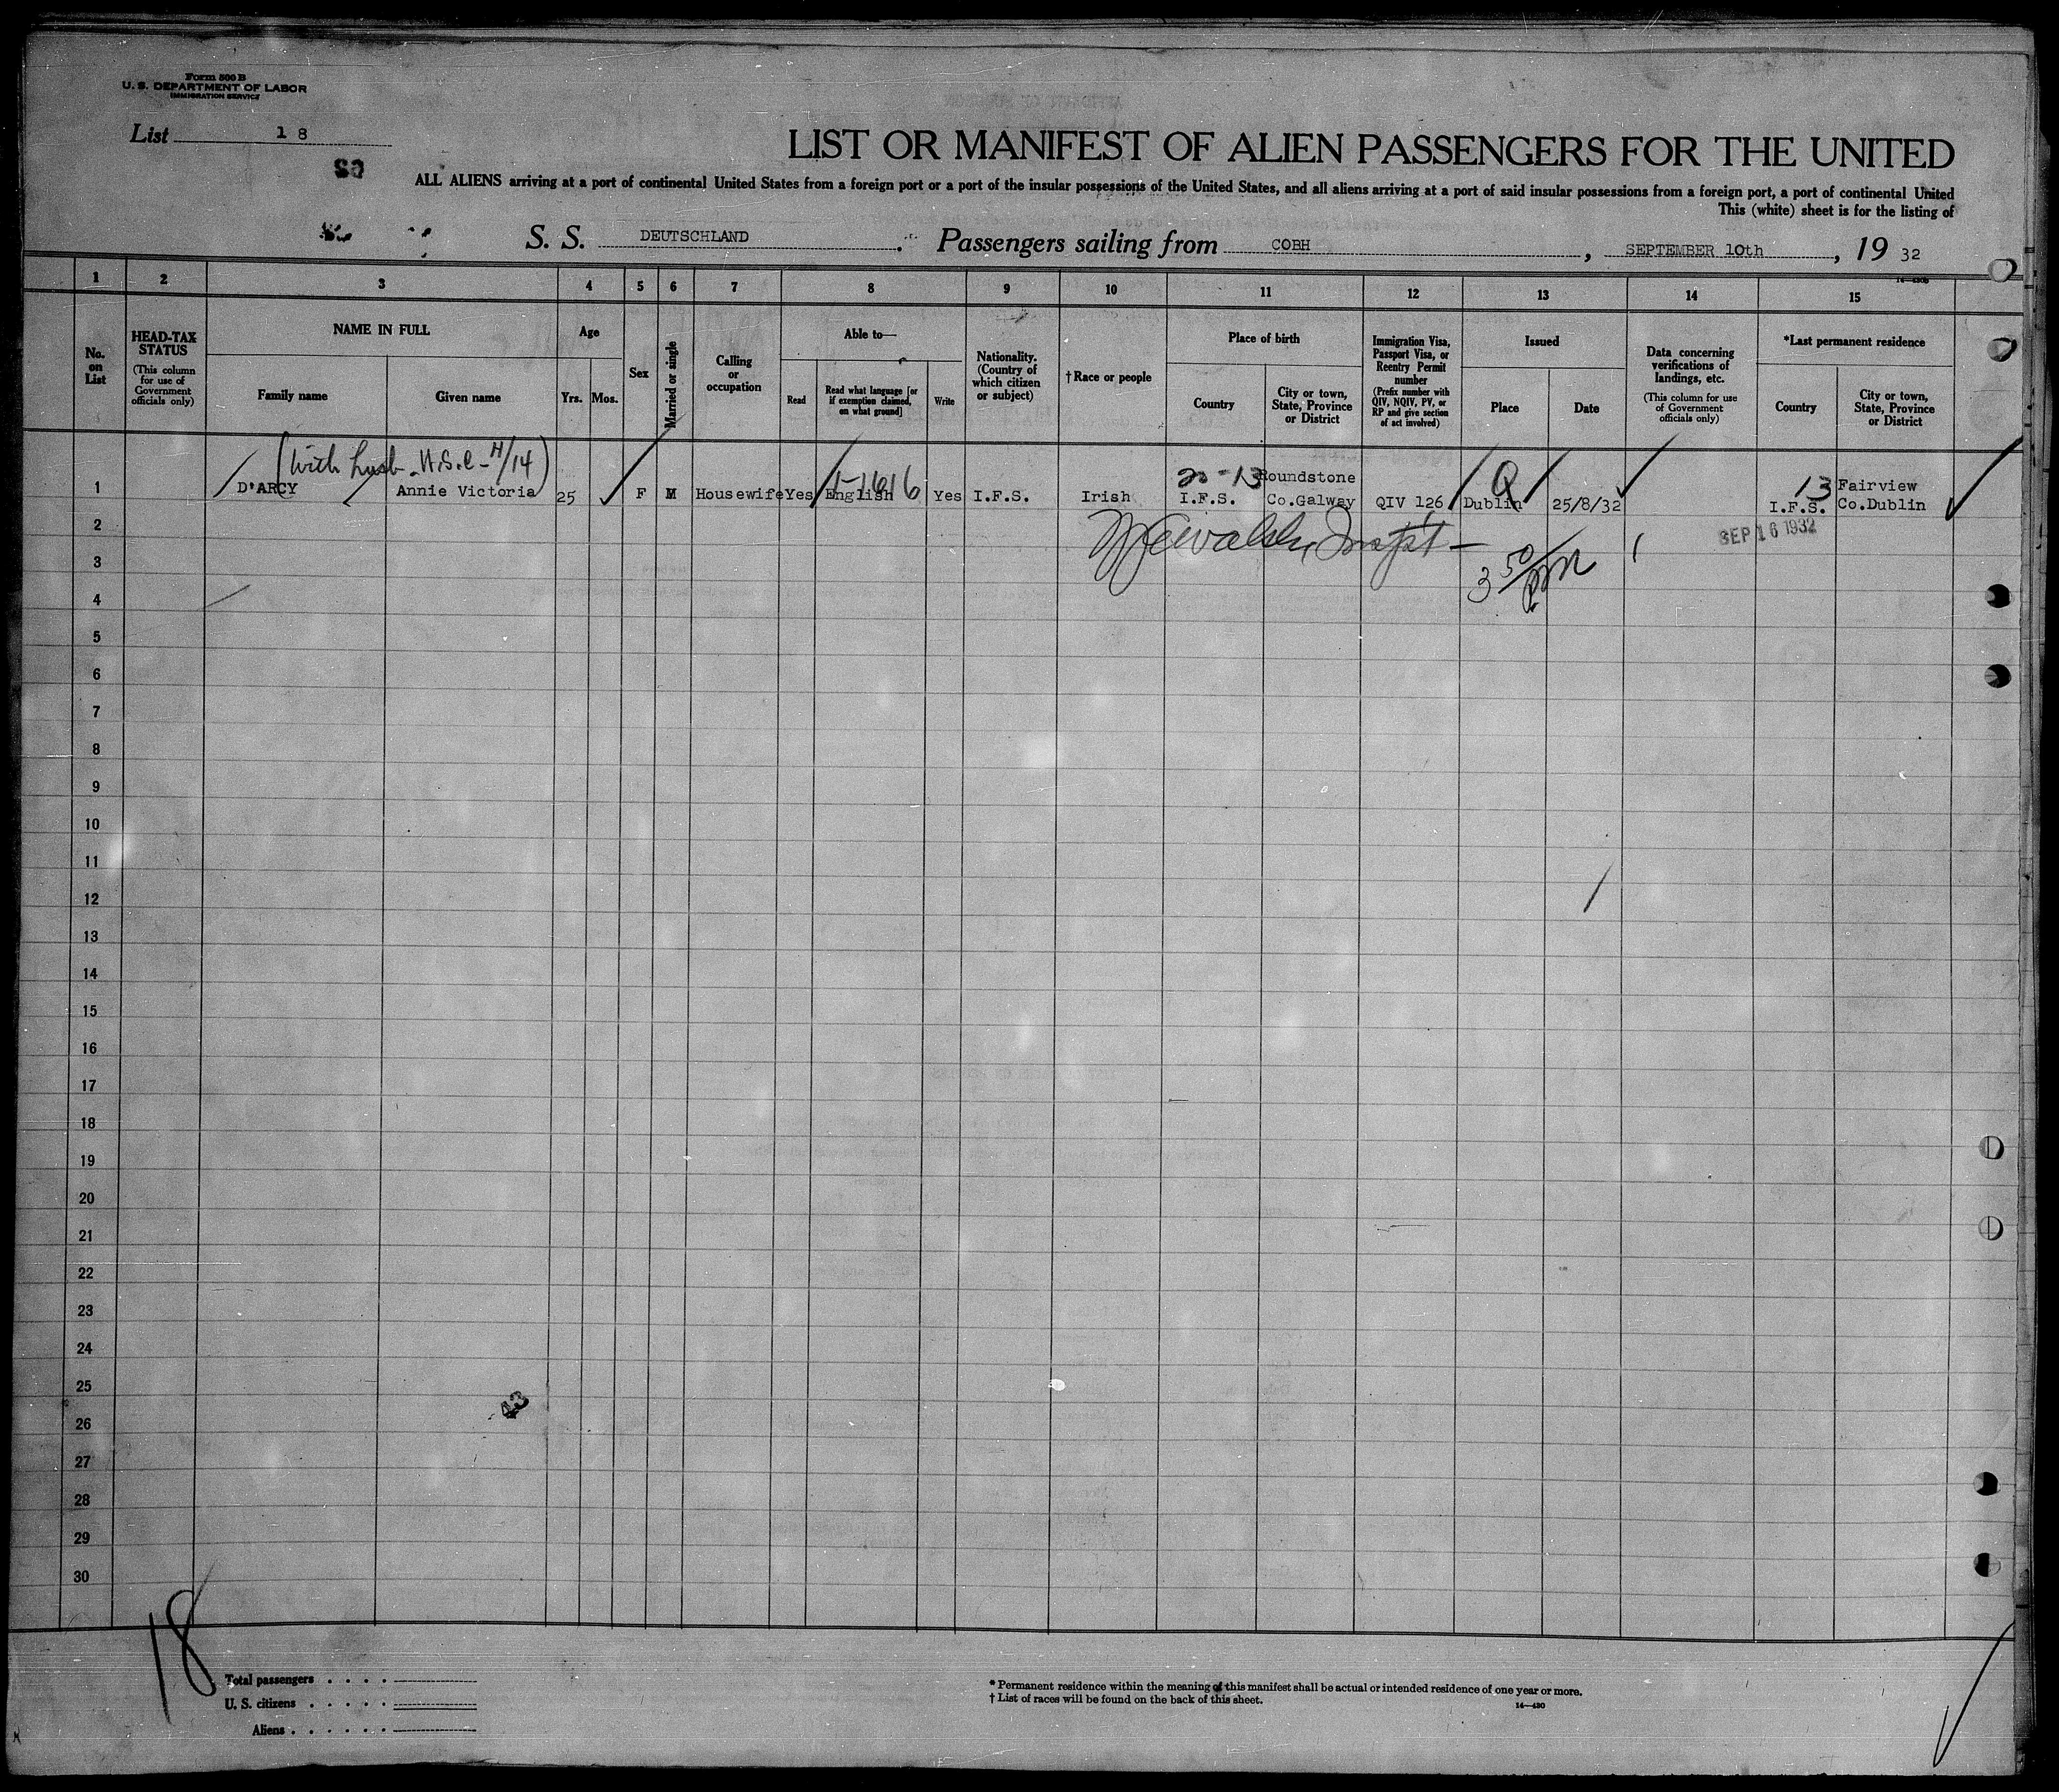 Form 500 B
U. S. DEPARTMENT OF LABOR
IMMIGRATION SERVICE
List 18
LIST OR MANIFEST OF ALIEN PASSENGERS FOR THE UNITED
ALL ALIENS arriving at a port of continental United States from a foreign port or a port of the insular possessions of the United States, and all aliens arriving at a port of said insular possessions from a foreign port, a port of continental United
This (white) sheet is for the listing of
S. S. DEUTSCHLAND. Passengers sailing from COBH, SEPTEMBER 10th, 19 32
1 2 3 4 5 6 7 8 9 10 11 12 13 14 15
No. on List
HEAD-TAX STATUS
(This column for use of Government officials only)
NAME IN FULL
Family name
Given name
Age
Yrs.
Mos.
Sex
Married or single
Calling or occupation
Able to—
Read
Read what language [or if exemption claimed, on what ground]
Write
Nationality. (Country of which citizen or subject)
†Race or people
Place of birth
Country
City or town, State, Province or District
Immigration Visa, Passport Visa, or Reentry Permit number
(Prefix number with QIV, NQIV, PV, or RP and give section of act involved)
Issued
Place
Date
Data concerning verifications of landings, etc.
(This column for use of Government officials only)
*Last permanent residence
Country
City or town, State, Province or District
(With husb - U.S.C - H/14)
1 D'ARCY Annie Victoria 25 F M Housewife Yes English Yes I.F.S. Irish I.F.S. Roundstone Co.Galway QIV 126 Dublin 25/8/32 I.F.S. Fairview Co.Dublin
1-1616
Q
13
SEP 16 1932
3 50/PM
2
3
4
5
6
7
8
9
10
11
12
13
14
15
16
17
18
19
20
21
22
23
24
25
26
27
28
29
30
18
Total passengers
U. S. citizens
Aliens
* Permanent residence within the meaning of this manifest shall be actual or intended residence of one year or more.
† List of races will be found on the back of this sheet.
14—430